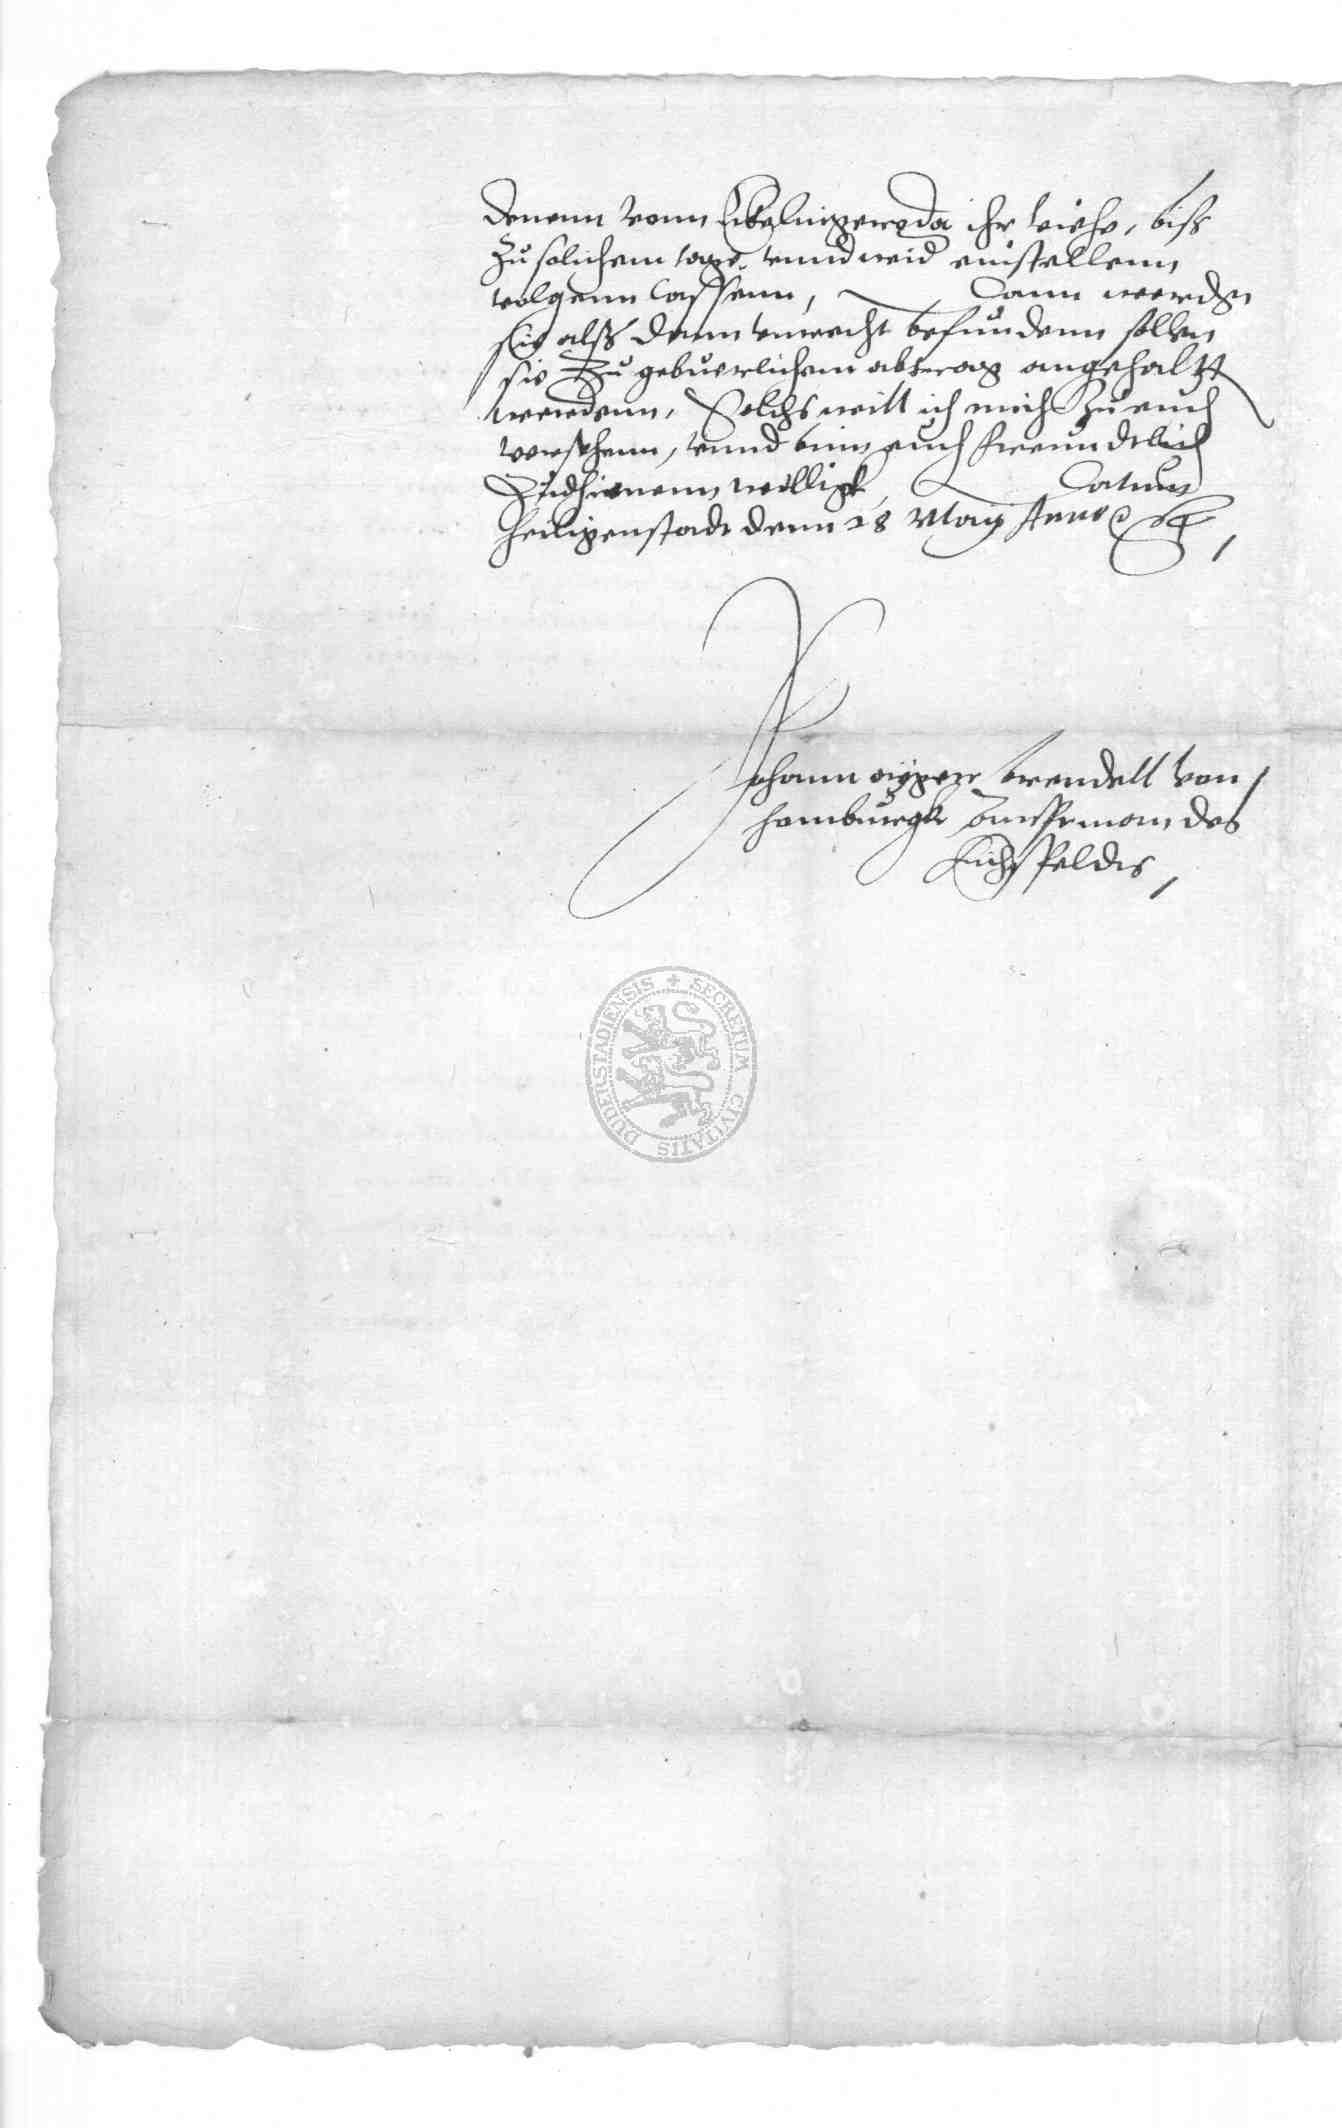 denenn vonn Ebelingeroda ihr viehe, biss
zu solichem tage, vnnd wid einstellenn
volgenn lassenn, Dann werden
sie alss dann vnrecht befundenn sollen
sie zu gebuerlichem abtrag angehaltt
werdenn, Solchs will ich mich zu euch
versehenn, vnnd binn euch freundtlich
zudhienenn willigk, Datum
heiligenstadt denn 18 Maij Anno
Johann oiger brendell von
homburgk Amptman des
Eichsfeldes,
SECRETUM CIVITATIS DUDERSTADIENSIS